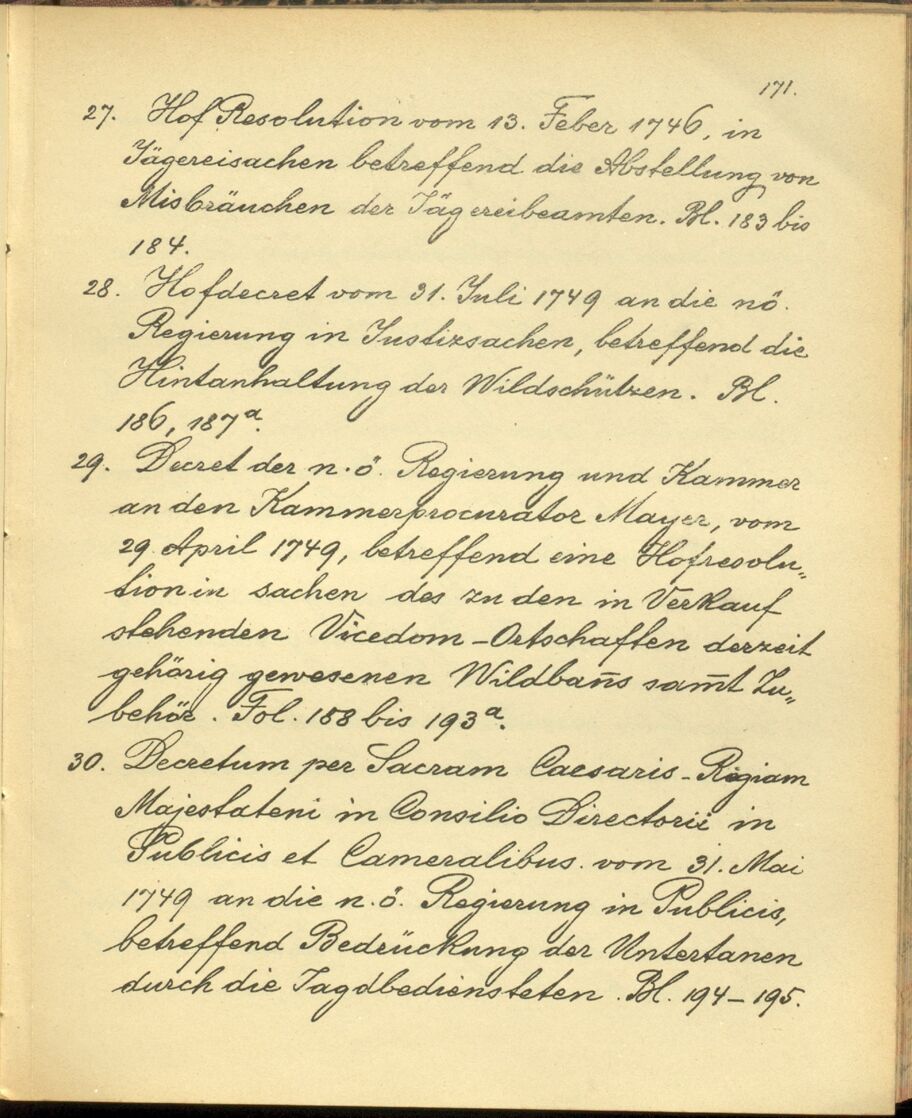 171.
27. Hof Resolution vom 13. Feber 1746, in
Jägereisachen betreffend die Abstellung von
Misbräuchen der Jägereibeamten. Bl. 183 bis
184.
28. Hofdecret vom 31. Juli 1749 an die nö.
Regierung in Justizsachen, betreffend die
Hintanhaltung der Wildschützen. Bl.
186, 187a.
29. Decret der n.ö. Regierung und Kammer
an den Kammerprocurator Mayer, vom
29. April 1749, betreffend eine Hofresolu„
tion in sachen des zu den in Verkauf
stehenden Vicedom-Ortschaften derzeit
gehörig gewesenen Wildban̄s sam̄t Zu„
behör. Fol. 188 bis 193a.
30. Decretum per Sacram Caesaris-Regiam
Majestateni in Consilio Directorii in
Publicis et Cameralibus. vom 31. Mai
1749 an die n.ö. Regierung in Publicis,
betreffend Bedrückung der Untertanen
durch die Jagdbediensteten. Bl. 194-195.